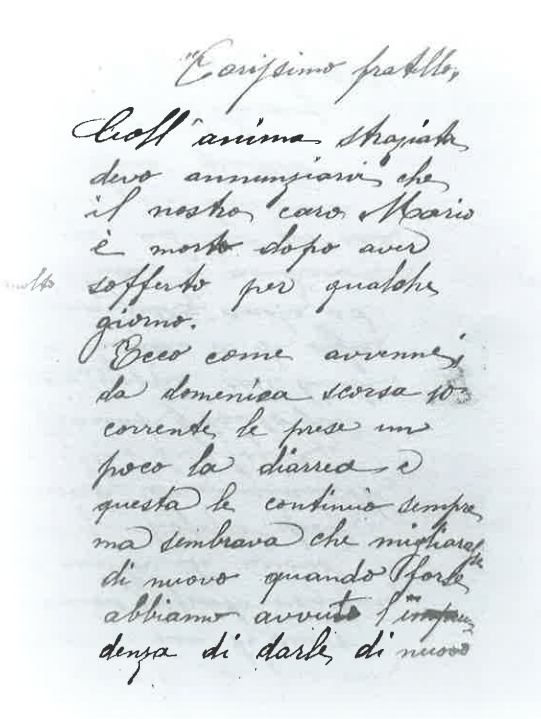 "Carissimo fratello,
Coll'anima straziata
devo annunziarvi che
il nostro caro Mario
è morto dopo aver
molto sofferto per qualche
giorno.
Ecco come avvenne;
da domenica scorsa 10
corrente le prese un
poco la diarrea e
questa le continuio sempre
ma sembrava che migliorasse
di nuovo quando forse
abbiamo avvuto l'impru
denza di darle di nuovo